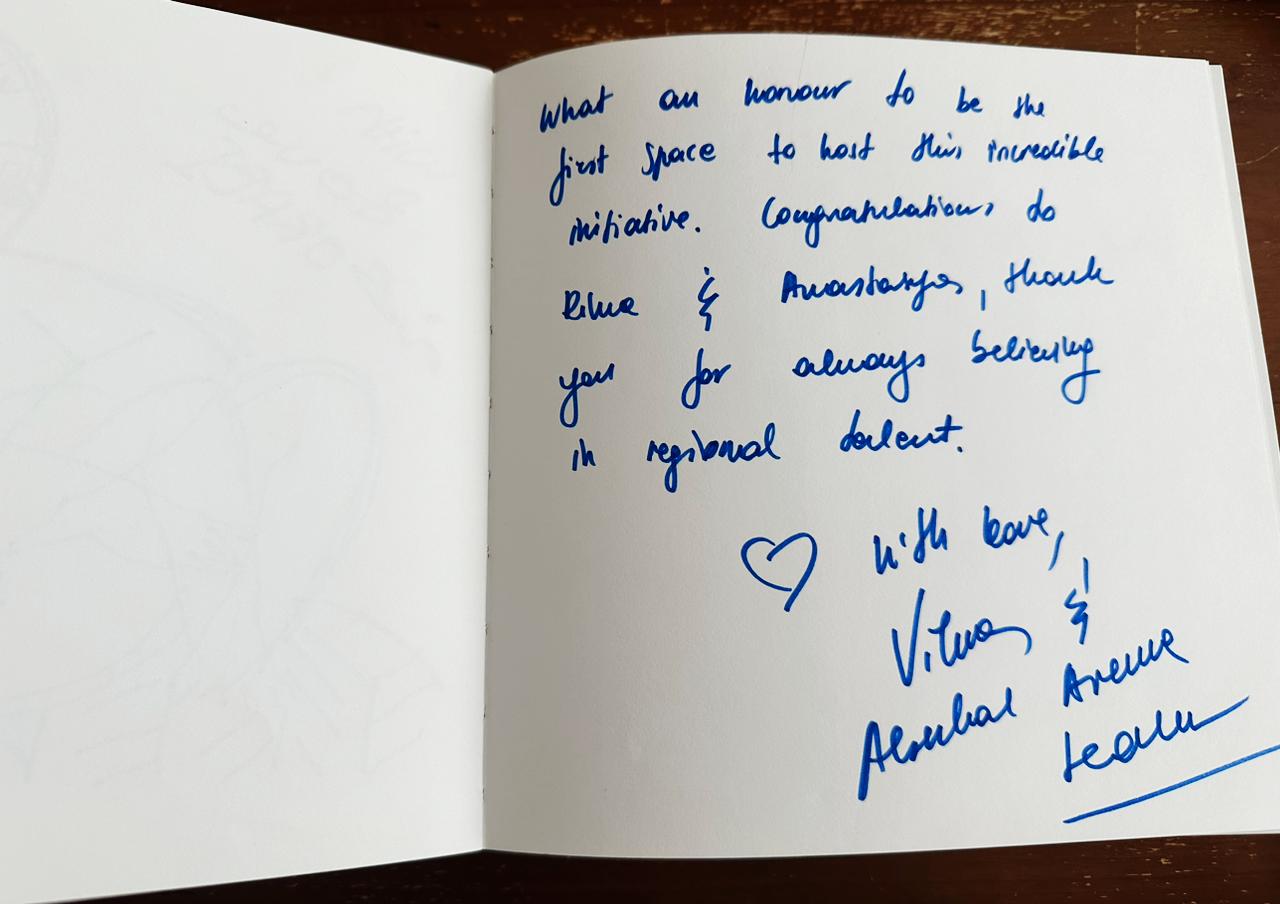 What an honour to be the
first space to host this incredible
initiative. Congratulations to
Rima & Anastasiya, thank
you for always believing
in regional talent.
With love,
Vilma &
Alserkal Avenue
team